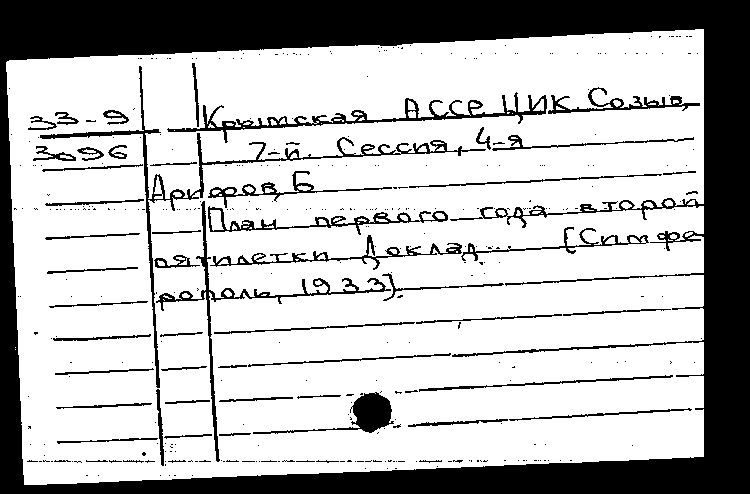 33-9 Крымская АССР ЦИК. Созыв,
3096 7-й. Сессия, 4-я
Арифов, Б
План первого года второй
пятилетки. Доклад... [Симфе
рополь, 1933].